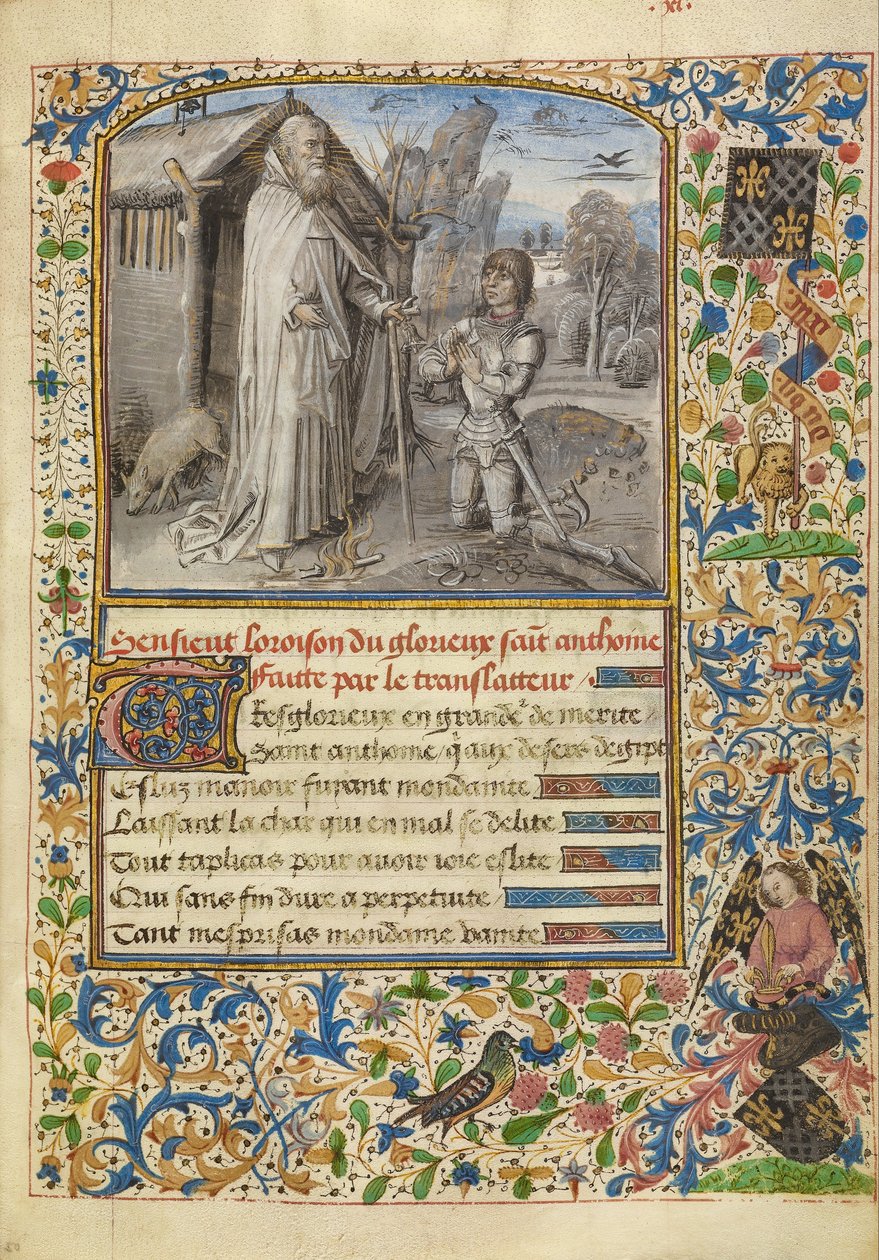 Sensieut loroison du glorieux saīt anthoine
faitte par le translatteur
Tresglorieux en grand de merite
Saint anthoine / q̄ aux desers degipt
Esluz manoir fuyant mondanite
Laissant la char qui en mal se delite
Tout taplicas pour auoir ioie eslite
Qui sans fin dure a perpetuite
Tant mesprisas mondaine vanite